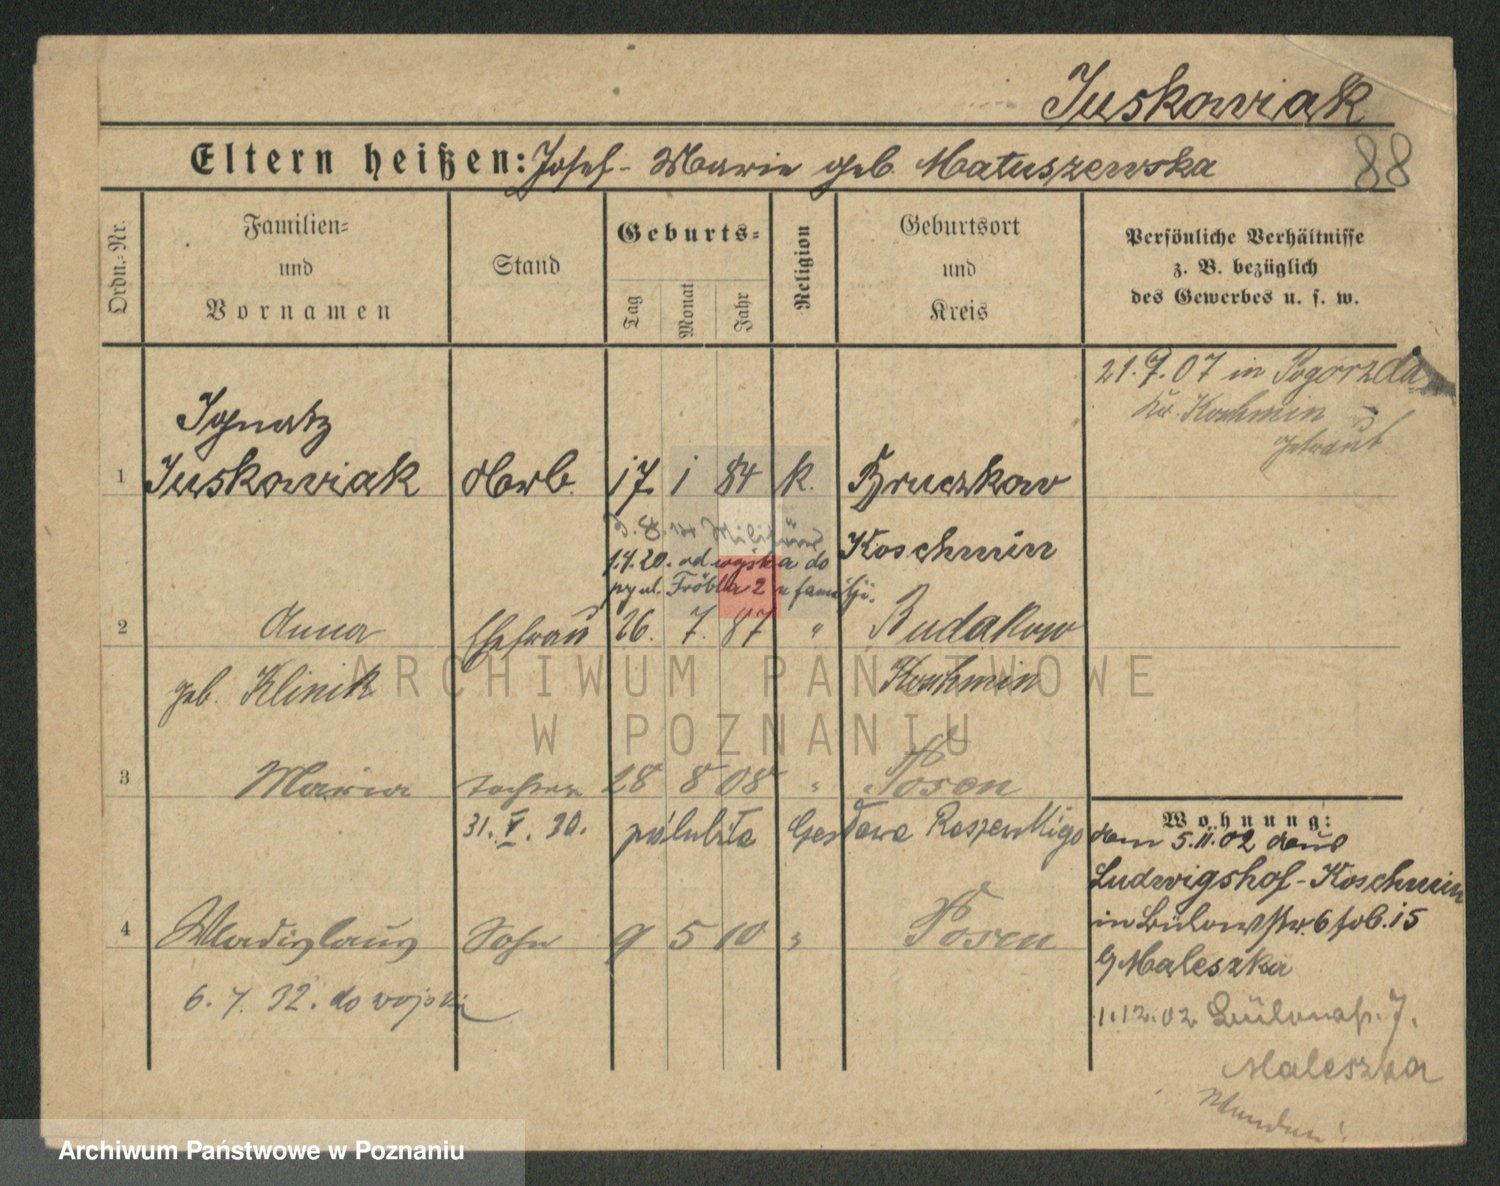 Juskowiak
Eltern heißen: Josef - Marie geb. Matuszewska
88
Ordn.-Nr.
Familien-
und
Vornamen
Stand
Geburts-
Tag
Monat
Jahr
Religion
Geburtsort
und
Kreis
Persönliche Verhältnisse
z. B. bezüglich
des Gewerbes u. s. w.
21. 9. 07 in Pogorzela
Kr. Koschmin
getraut
Ignatz
1 Juskowiak 17. 1 84 k. Bruczkow
Koschmin
1.4.20. od wojska do
przy ul. Fröbla 2 u familji.
2 Anna Ehefrau 26. 7. 87 " Budakow
geb. Klinik Koschmin
3 Maria Tochter 28 8 08 " Posen
31. V. 30. poślubiła
4 Wladislaus Sohn 9 5 10 " Posen
6. 7. 32. do wojska
Wohnung:
dem 5.11.02 aus
Ludwigshof - Koschmin
in Bülowstr. 6 fob. 15
Maleszka
1.12.02 Bülowstr. 7.
Maleszka
ARCHIWUM PAŃSTWOWE
W POZNANIU
Archiwum Państwowe w Poznaniu